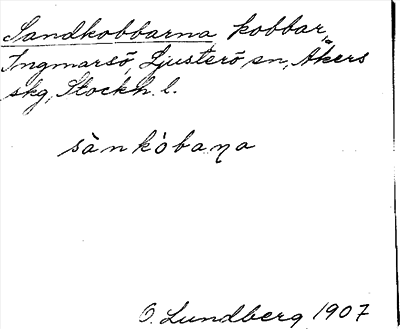 Sandkobbarna kobbar,
Ingmarsö, Ljusterö sn, Åkers
skg, Stockh. l.
sànkòbaɳa
O. Lundberg 1907